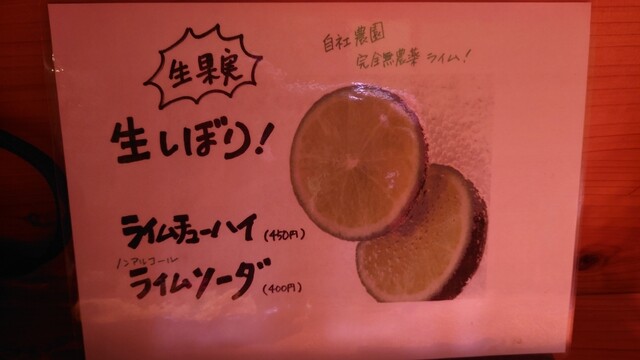 自社農園
完全無農薬ライム!
生果実
生しぼり!
ライムチューハイ(450円)
ノンアルコール
ライムソーダ(400円)